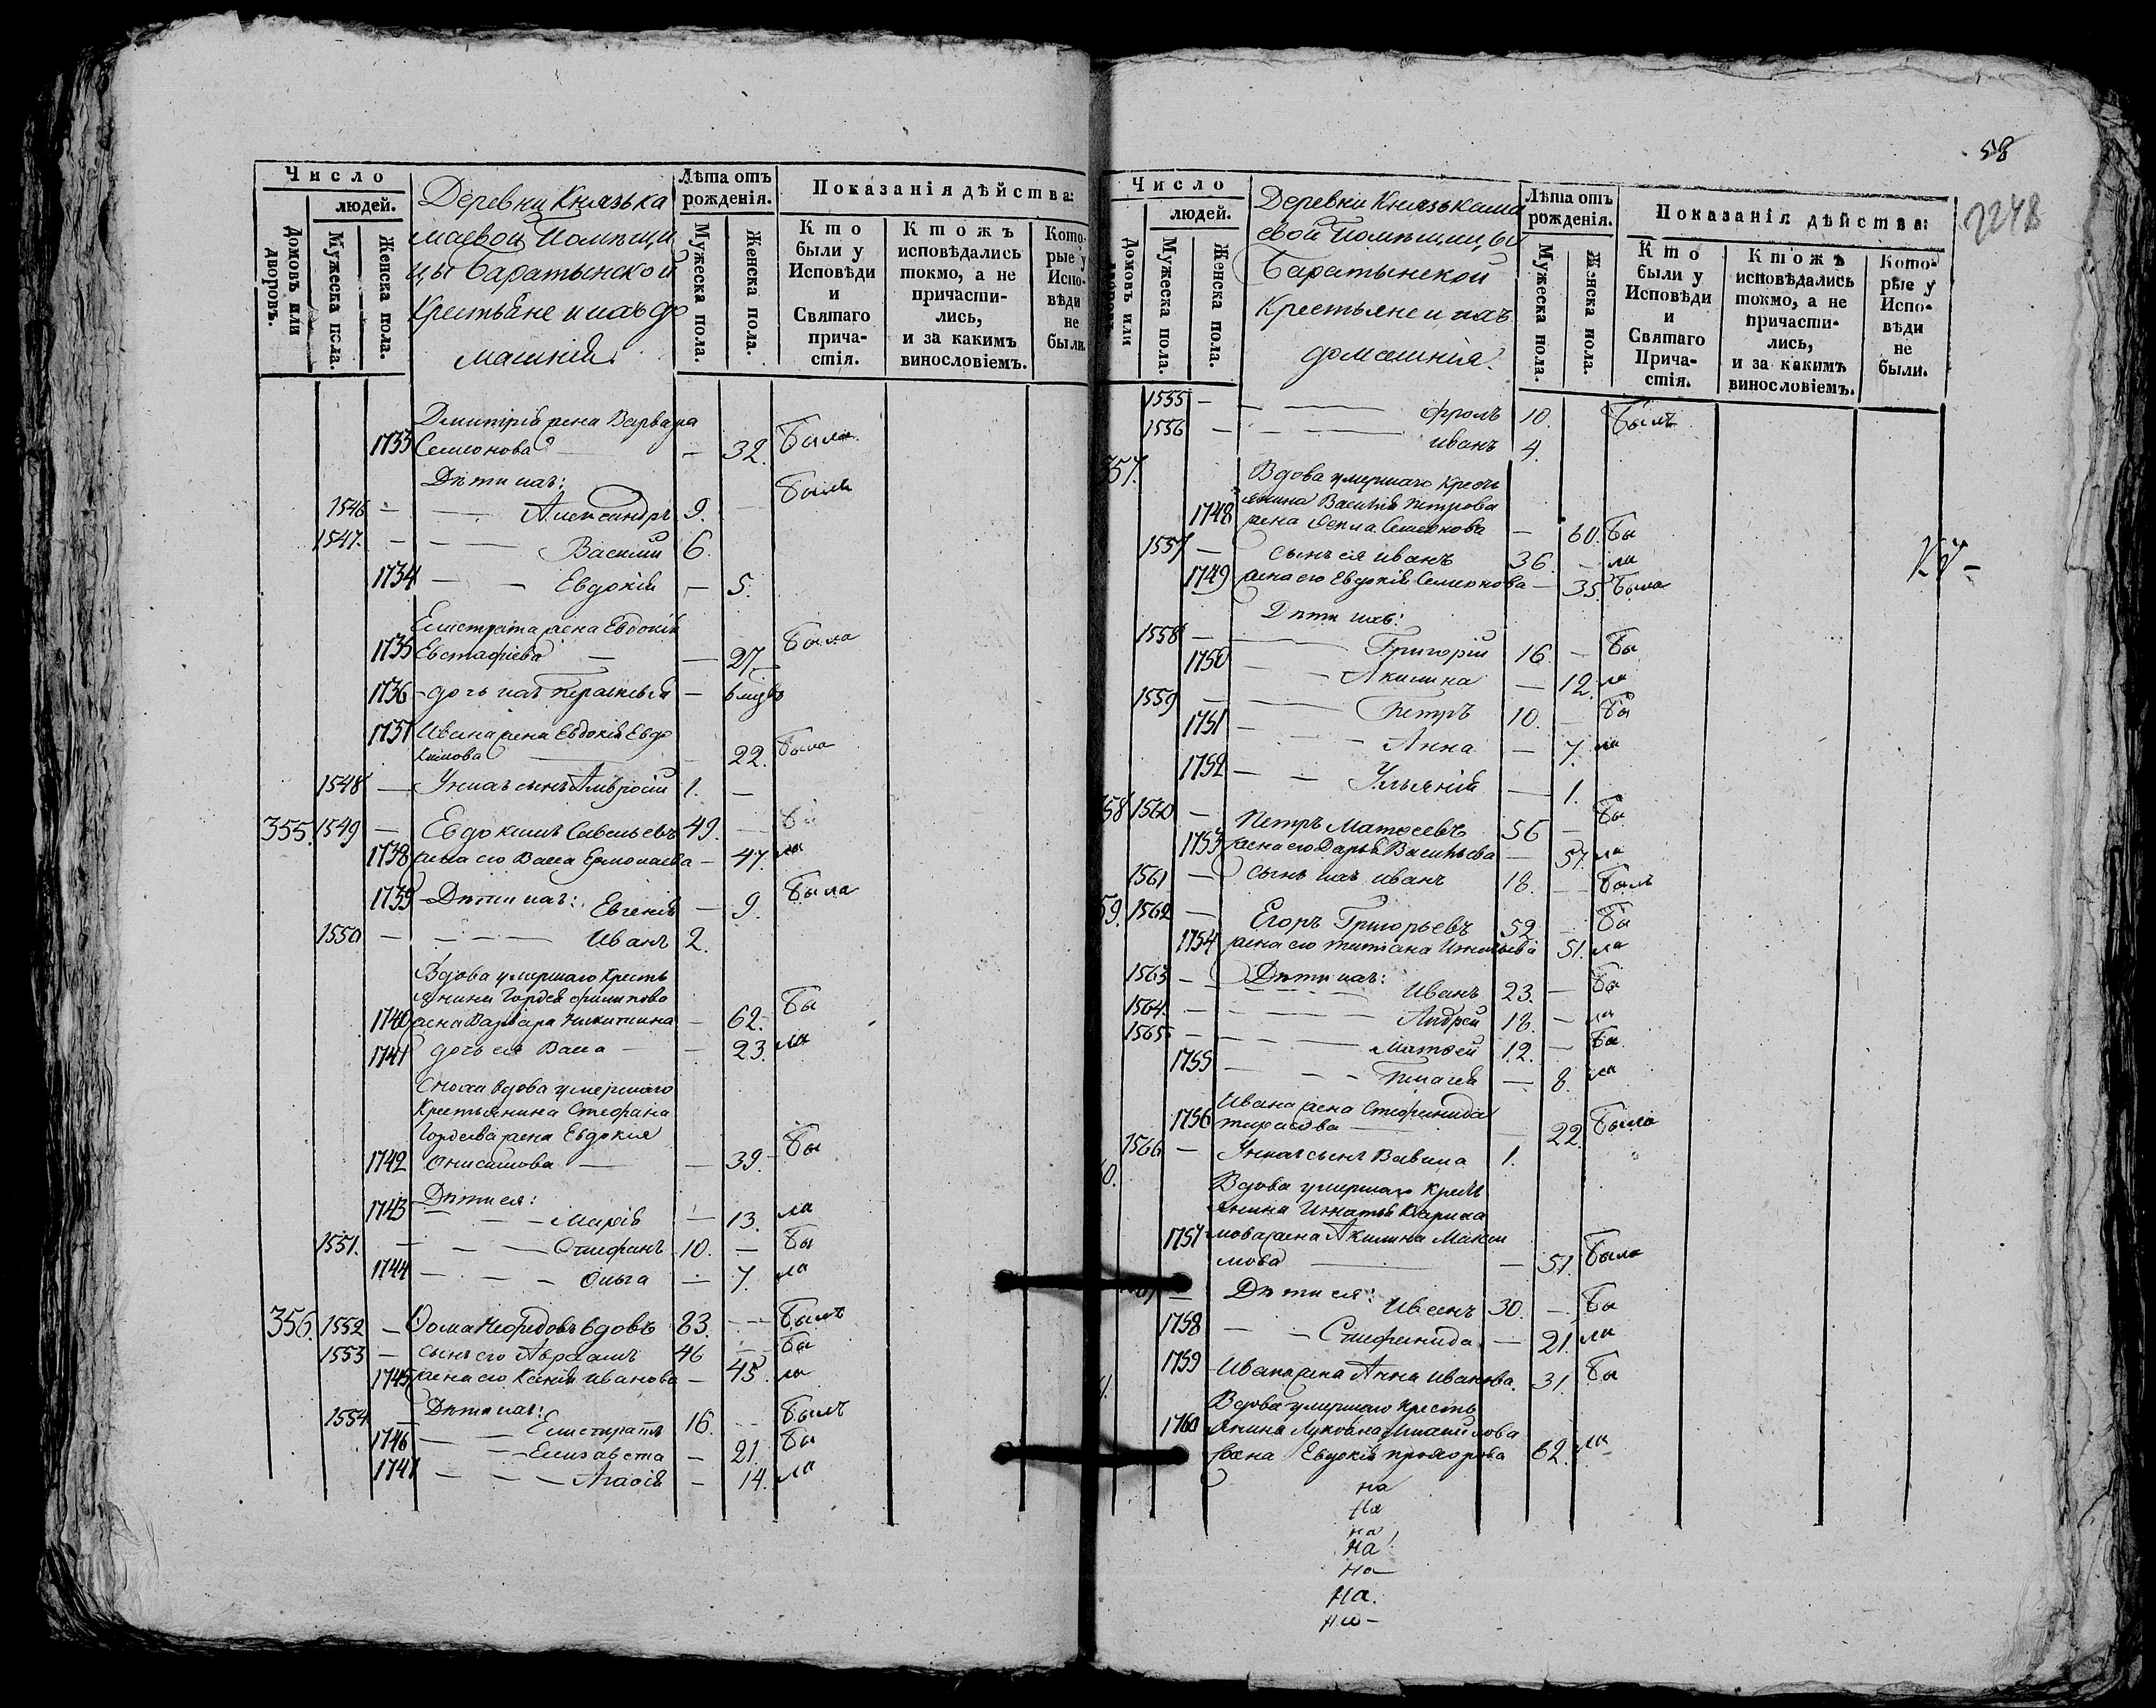 Число
людей.
Домовъ или дворовъ.
Мужеска пола.
Женска пола.
Деревни Князька
маевой Помѣщи
цы Баратынской
Крестьяне и ихъ до
машнія.
Лѣта отъ рожденія.
Мужеска пола.
Женска пола.
Показанія дѣйства:
Кто были у Исповѣди и Святаго причастія.
Ктожъ исповѣдались токмо, а не причастились, и за какимъ винословіемъ.
Которые у Исповѣди не были.
Дмитрія жена Варвара
1733 Семионова — 32. Была
Дѣти ихъ: Были
1546 — Александръ 9. —
1547. — Василій 6.
1734 — Евдокія — 5.
Елистрата жена Евдокія
1735 Евстафіева — 27 — Была
1736 — дочь ихъ Параскевія —
1737 Ивана жена Евдокія Евдо
кимова — 22. Была
1548 — У нихъ сынъ Амвросій 1. —
355. 1549 — Евдокимъ Савельевъ 49. — Бы
1738 жена его Васса Ермолаева — 47. ла
1739 — Дѣти ихъ: Евгенія — 9. Была
1550 — Иванъ 2.
Вдова умершаго Кресть
янина Гордея Филипово
1740 жена Варвара Никитина — 62. Бы
1741 дочь ея Васса — 23. ла
Сноха вдова умершаго
Крестьянина Стефана
Гордеева жена Евдокія
1742 Онисимова — 39. Бы
1743 Дѣти ея:
Марія — 13. ла
1551. — Стефанъ 10. — Бы
1744 — Ольга — 7. ла
356. 1552 — Ѳома Нефедовъ вдовъ 83. — Былъ
1553 — сынъ его Авраамъ 46 — Бы
1745 жена его Ксенія Иванова — 45. ла
1554 — Дѣти ихъ:
Елистратъ 16. — Былъ
1746 — Елизавета — 21. Бы
1747 — Агафія — 14. ла
58
Число
людей.
Домовъ или дворовъ.
Мужеска пола.
Женска пола.
Деревни Князькама
евой Помѣщицы
Баратынской
Крестьяне и ихъ
домашнія.
Лѣта отъ рожденія.
Мужеска пола.
Женска пола.
Показанія дѣйства:
Кто были у Исповѣди и Святаго Причастія.
Ктожъ исповѣдались токмо, а не причастились, и за какимъ винословіемъ.
Которые у Исповѣди не были.
1555 — Фролъ 10. Былъ
1556 — Иванъ 4.
57. Вдова умершаго Кресть
янина Василія Петрова
1748 жена Ѳекла Семионова — 60. Бы
1557 — Сынъ ея Иванъ 36. — ла
1749 жена его Евдокія Семионова — 35. Была
Дѣти ихъ:
1558 — Григорій 16. — Бы
1750 — Акилина — 12. ла
1559 — Петръ 10. — Бы
1751 — Анна — 7. ла
1752 — Ульянія — 1.
58 1560 — Петръ Матѳеевъ 56 — Бы
1753 жена его Дарья Васильева — 57. ла
1561 — Сынъ ихъ Иванъ 18. — Былъ
59. 1562 — Егоръ Григорьевъ 52. — Бы
1754 жена его Татіана Игнатьева 51. ла
1563 — Дѣти ихъ:
Иванъ 23. — Бы
1564. — Андрей 18. — ла
1565 — Матѳей 12. — Бы
1755 — Пелагея — 8. ла
Ивана жена Стефанида
1756 Тарасова — 22. Была
1566 — У нихъ сынъ Вавила 1.
60. Вдова умершаго Кресть
янина Игнатья
1757 жена Акилина Макси
мова — 57. Была
Дѣти ея:
Иванъ 30. — Бы
1758 — Стефанида — 21. ла
1759 Ивана жена Анна Иванова. 31. Бы
Вдова умершаго Кресть
1760 янина
жена Евдокія Прохорова 62. ла
на
На
на
На
На
На.